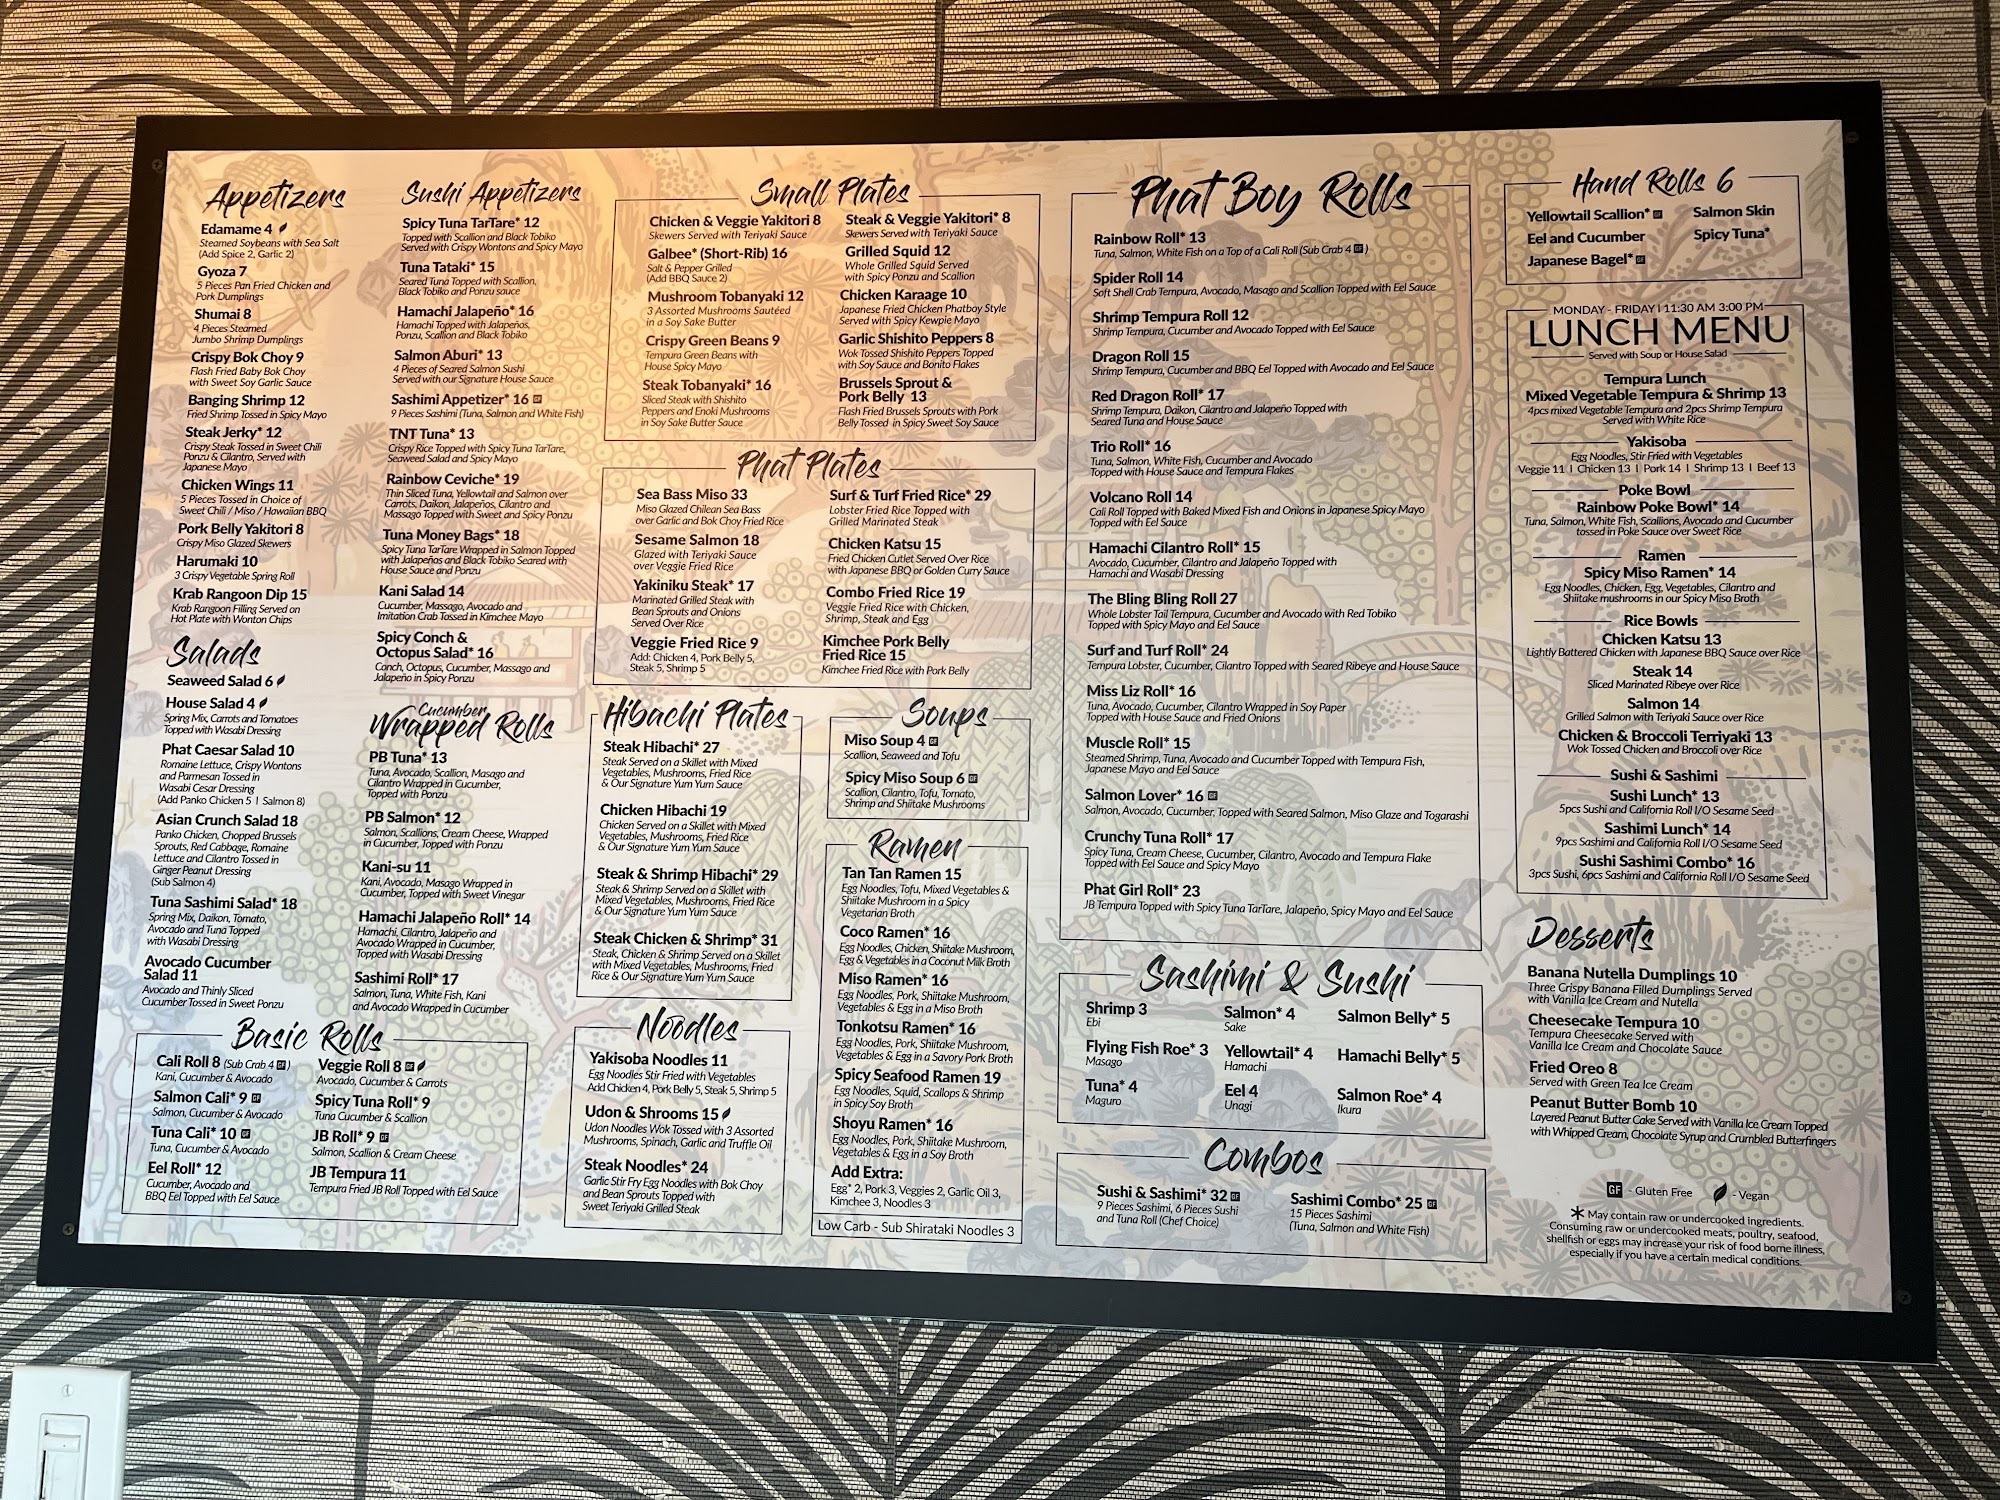 Appetizers
Edamame 4
Steamed Soybeans with Sea Salt
(Add Spice 2, Garlic 2)
Gyoza 7
5 Pieces Pan Fried Chicken and
Pork Dumplings
Shumai 8
4 Pieces Steamed
Jumbo Shrimp Dumplings
Crispy Bok Choy 9
Flash Fried Baby Bok Choy
with Sweet Soy Garlic Sauce
Banging Shrimp 12
Fried Shrimp Tossed in Spicy Mayo
Steak Jerky* 12
Crispy Steak Tossed in Sweet Chili
Ponzu & Cilantro, Served with
Japanese Mayo
Chicken Wings 11
5 Pieces Tossed in Choice of
Sweet Chili / Miso / Hawaiian BBQ
Pork Belly Yakitori 8
Crispy Miso Glazed Skewers
Harumaki 10
3 Crispy Vegetable Spring Roll
Krab Rangoon Dip 15
Krab Rangoon Filling Served on
Hot Plate with Wonton Chips
Salads
Seaweed Salad 6
House Salad 4
Spring Mix, Carrots and Tomatoes
Topped with Wasabi Dressing
Phat Caesar Salad 10
Romaine Lettuce, Crispy Wontons
and Parmesan Tossed in
Wasabi Cesar Dressing
(Add Panko Chicken 5 | Salmon 8)
Asian Crunch Salad 18
Panko Chicken, Chopped Brussels
Sprouts, Red Cabbage, Romaine
Lettuce and Cilantro Tossed in
Ginger Peanut Dressing
(Sub Salmon 4)
Tuna Sashimi Salad* 18
Spring Mix, Daikon, Tomato,
Avocado and Tuna Topped
with Wasabi Dressing
Avocado Cucumber
Salad 11
Avocado and Thinly Sliced
Cucumber Tossed in Sweet Ponzu
Sushi Appetizers
Spicy Tuna TarTare* 12
Topped with Scallion and Black Tobiko
Served with Crispy Wontons and Spicy Mayo
Tuna Tataki* 15
Seared Tuna Topped with Scallion,
Black Tobiko and Ponzu sauce
Hamachi Jalapeño* 16
Hamachi Topped with Jalapeños,
Ponzu, Scallion and Black Tobiko
Salmon Aburi* 13
4 Pieces of Seared Salmon Sushi
Served with our Signature House Sauce
Sashimi Appetizer* 16 GF
9 Pieces Sashimi (Tuna, Salmon and White Fish)
TNT Tuna* 13
Crispy Rice Topped with Spicy Tuna TarTare,
Seaweed Salad and Spicy Mayo
Rainbow Ceviche* 19
Thin Sliced Tuna, Yellowtail and Salmon over
Carrots, Daikon, Jalapeños, Cilantro and
Massago Topped with Sweet and Spicy Ponzu
Tuna Money Bags* 18
Spicy Tuna TarTare Wrapped in Salmon Topped
with Jalapeñas and Black Tobiko Seared with
House Sauce and Ponzu
Kani Salad 14
Cucumber, Massago, Avocado and
Imitation Crab Tossed in Kimchee Mayo
Spicy Conch &
Octopus Salad* 16
Conch, Octopus, Cucumber, Massago and
Jalapeño in Spicy Ponzu
Cucumber
Wrapped Rolls
PB Tuna* 13
Tuna, Avocado, Scallion, Masago and
Cilantro Wrapped in Cucumber,
Topped with Ponzu
PB Salmon* 12
Salmon, Scallions, Cream Cheese, Wrapped
in Cucumber, Topped with Ponzu
Kani-su 11
Kani, Avocado, Masago Wrapped in
Cucumber, Topped with Sweet Vinegar
Hamachi Jalapeño Roll* 14
Hamachi, Cilantro, Jalapeño and
Avocado Wrapped in Cucumber,
Topped with Wasabi Dressing
Sashimi Roll* 17
Salmon, Tuna, White Fish, Kani
and Avocado Wrapped in Cucumber
Basic Rolls
Cali Roll 8 (Sub Crab 4 GF)
Kani, Cucumber & Avocado
Salmon Cali* 9 GF
Salmon, Cucumber & Avocado
Tuna Cali* 10 GF
Tuna, Cucumber & Avocado
Eel Roll* 12
Cucumber, Avocado and
BBQ Eel Topped with Eel Sauce
Veggie Roll 8 GF
Avocado, Cucumber & Carrots
Spicy Tuna Roll* 9
Tuna Cucumber & Scallion
JB Roll* 9 GF
Salmon, Scallion & Cream Cheese
JB Tempura 11
Tempura Fried JB Roll Topped with Eel Sauce
Small Plates
Chicken & Veggie Yakitori 8
Skewers Served with Teriyaki Sauce
Galbee* (Short-Rib) 16
Salt & Pepper Grilled
(Add BBQ Sauce 2)
Mushroom Tobanyaki 12
3 Assorted Mushrooms Sautéed
in a Soy Sake Butter
Crispy Green Beans 9
Tempura Green Beans with
House Spicy Mayo
Steak Tobanyaki* 16
Sliced Steak with Shishito
Peppers and Enoki Mushrooms
in Soy Sake Butter Sauce
Steak & Veggie Yakitori* 8
Skewers Served with Teriyaki Sauce
Grilled Squid 12
Whole Grilled Squid Served
with Spicy Ponzu and Scallion
Chicken Karaage 10
Japanese Fried Chicken Phatboy Style
Served with Spicy Kewpie Mayo
Garlic Shishito Peppers 8
Wok Tossed Shishito Peppers Topped
with Soy Sauce and Bonito Flakes
Brussels Sprout &
Pork Belly 13
Flash Fried Brussels Sprouts with Pork
Belly Tossed in Spicy Sweet Soy Sauce
Phat Plates
Sea Bass Miso 33
Miso Glazed Chilean Sea Bass
over Garlic and Bok Choy Fried Rice
Sesame Salmon 18
Glazed with Teriyaki Sauce
over Veggie Fried Rice
Yakiniku Steak* 17
Marinated Grilled Steak with
Bean Sprouts and Onions
Served Over Rice
Veggie Fried Rice 9
Add: Chicken 4, Pork Belly 5,
Steak 5, Shrimp 5
Surf & Turf Fried Rice* 29
Lobster Fried Rice Topped with
Grilled Marinated Steak
Chicken Katsu 15
Fried Chicken Cutlet Served Over Rice
with Japanese BBQ or Golden Curry Sauce
Combo Fried Rice 19
Veggie Fried Rice with Chicken,
Shrimp, Steak and Egg
Kimchee Pork Belly
Fried Rice 15
Kimchee Fried Rice with Pork Belly
Hibachi Plates
Steak Hibachi* 27
Steak Served on a Skillet with Mixed
Vegetables, Mushrooms, Fried Rice
& Our Signature Yum Yum Sauce
Chicken Hibachi 19
Chicken Served on a Skillet with Mixed
Vegetables, Mushrooms, Fried Rice
& Our Signature Yum Yum Sauce
Steak & Shrimp Hibachi* 29
Steak & Shrimp Served on a Skillet with
Mixed Vegetables, Mushrooms, Fried Rice
& Our Signature Yum Yum Sauce
Steak Chicken & Shrimp* 31
Steak, Chicken & Shrimp Served on a Skillet
with Mixed Vegetables, Mushrooms, Fried
Rice & Our Signature Yum Yum Sauce
Noodles
Yakisoba Noodles 11
Egg Noodles Stir Fried with Vegetables
Add Chicken 4, Pork Belly 5, Steak 5, Shrimp 5
Udon & Shrooms 15
Udon Noodles Wok Tossed with 3 Assorted
Mushrooms, Spinach, Garlic and Truffle Oil
Steak Noodles* 24
Garlic Stir Fry Egg Noodles with Bok Choy
and Bean Sprouts Topped with
Sweet Teriyaki Grilled Steak
Soups
Miso Soup 4 GF
Scallion, Seaweed and Tofu
Spicy Miso Soup 6 GF
Scallion, Cilantro, Tofu, Tomato,
Shrimp and Shiitake Mushrooms
Ramen
Tan Tan Ramen 15
Egg Noodles, Tofu, Mixed Vegetables &
Shiitake Mushroom in a Spicy
Vegetarian Broth
Coco Ramen* 16
Egg Noodles, Chicken, Shiitake Mushroom,
Egg & Vegetables in a Coconut Milk Broth
Miso Ramen* 16
Egg Noodles, Pork, Shiitake Mushroom,
Vegetables & Egg in a Miso Broth
Tonkotsu Ramen* 16
Egg Noodles, Pork, Shiitake Mushroom,
Vegetables & Egg in a Savory Pork Broth
Spicy Seafood Ramen 19
Egg Noodles, Squid, Scallops & Shrimp
in Spicy Soy Broth
Shoyu Ramen* 16
Egg Noodles, Pork, Shiitake Mushroom,
Vegetables & Egg in a Soy Broth
Add Extra:
Egg* 2, Pork 3, Veggies 2, Garlic Oil 3,
Kimchee 3, Noodles 3
Low Carb - Sub Shirataki Noodles 3
Phat Boy Rolls
Rainbow Roll* 13
Tuna, Salmon, White Fish on a Top of a Cali Roll (Sub Crab 4 GF)
Spider Roll 14
Soft Shell Crab Tempura, Avocado, Masago and Scallion Topped with Eel Sauce
Shrimp Tempura Roll 12
Shrimp Tempura, Cucumber and Avocado Topped with Eel Sauce
Dragon Roll 15
Shrimp Tempura, Cucumber and BBQ Eel Topped with Avocado and Eel Sauce
Red Dragon Roll* 17
Shrimp Tempura, Daikon, Cilantro and Jalapeño Topped with
Seared Tuna and House Sauce
Trio Roll* 16
Tuna, Salmon, White Fish, Cucumber and Avocado
Topped with House Sauce and Tempura Flakes
Volcano Roll 14
Cali Roll Topped with Baked Mixed Fish and Onions in Japanese Spicy Mayo
Topped with Eel Sauce
Hamachi Cilantro Roll* 15
Avocado, Cucumber, Cilantro and Jalapeño Topped with
Hamachi and Wasabi Dressing
The Bling Bling Roll 27
Whole Lobster Tail Tempura, Cucumber and Avocado with Red Tobiko
Topped with Spicy Mayo and Eel Sauce
Surf and Turf Roll* 24
Tempura Lobster, Cucumber, Cilantro Topped with Seared Ribeye and House Sauce
Miss Liz Roll* 16
Tuna, Avocado, Cucumber, Cilantro Wrapped in Soy Paper
Topped with House Sauce and Fried Onions
Muscle Roll* 15
Steamed Shrimp, Tuna, Avocado and Cucumber Topped with Tempura Fish,
Japanese Mayo and Eel Sauce
Salmon Lover* 16 GF
Salmon, Avocado, Cucumber, Topped with Seared Salmon, Miso Glaze and Togarashi
Crunchy Tuna Roll* 17
Spicy Tuna, Cream Cheese, Cucumber, Cilantro, Avocado and Tempura Flake
Topped with Eel Sauce and Spicy Mayo
Phat Girl Roll* 23
JB Tempura Topped with Spicy Tuna TarTare, Jalapeño, Spicy Mayo and Eel Sauce
Sashimi & Sushi
Shrimp 3
Ebi
Flying Fish Roe* 3
Masago
Tuna* 4
Maguro
Salmon* 4
Sake
Yellowtail* 4
Hamachi
Eel 4
Unagi
Salmon Belly* 5
Hamachi Belly* 5
Salmon Roe* 4
Ikura
Combos
Sushi & Sashimi* 32 GF
9 Pieces Sashimi, 6 Pieces Sushi
and Tuna Roll (Chef Choice)
Sashimi Combo* 25 GF
15 Pieces Sashimi
(Tuna, Salmon and White Fish)
Hand Rolls 6
Yellowtail Scallion* GF
Eel and Cucumber
Japanese Bagel* GF
Salmon Skin
Spicy Tuna*
MONDAY - FRIDAY | 11:30 AM 3:00 PM
LUNCH MENU
Served with Soup or House Salad
Tempura Lunch
Mixed Vegetable Tempura & Shrimp 13
4pcs mixed Vegetable Tempura and 2pcs Shrimp Tempura
Served with White Rice
Yakisoba
Egg Noodles, Stir Fried with Vegetables
Veggie 11 | Chicken 13 | Pork 14 | Shrimp 13 | Beef 13
Poke Bowl
Rainbow Poke Bowl* 14
Tuna, Salmon, White Fish, Scallions, Avocado and Cucumber
tossed in Poke Sauce over Sweet Rice
Ramen
Spicy Miso Ramen* 14
Egg Noodles, Chicken, Egg, Vegetables, Cilantro and
Shiitake mushrooms in our Spicy Miso Broth
Rice Bowls
Chicken Katsu 13
Lightly Battered Chicken with Japanese BBQ Sauce over Rice
Steak 14
Sliced Marinated Ribeye over Rice
Salmon 14
Grilled Salmon with Teriyaki Sauce over Rice
Chicken & Broccoli Terriyaki 13
Wok Tossed Chicken and Broccoli over Rice
Sushi & Sashimi
Sushi Lunch* 13
5pcs Sushi and California Roll I/O Sesame Seed
Sashimi Lunch* 14
9pcs Sashimi and California Roll I/O Sesame Seed
Sushi Sashimi Combo* 16
3pcs Sushi, 6pcs Sashimi and California Roll I/O Sesame Seed
Desserts
Banana Nutella Dumplings 10
Three Crispy Banana Filled Dumplings Served
with Vanilla Ice Cream and Nutella
Cheesecake Tempura 10
Tempura Cheesecake Served with
Vanilla Ice Cream and Chocolate Sauce
Fried Oreo 8
Served with Green Tea Ice Cream
Peanut Butter Bomb 10
Layered Peanut Butter Cake Served with Vanilla Ice Cream Topped
with Whipped Cream, Chocolate Syrup and Crumbled Butterfingers
GF - Gluten Free - Vegan
* May contain raw or undercooked ingredients.
Consuming raw or undercooked meats, poultry, seafood,
shellfish or eggs may increase your risk of food borne illness,
especially if you have a certain medical conditions.